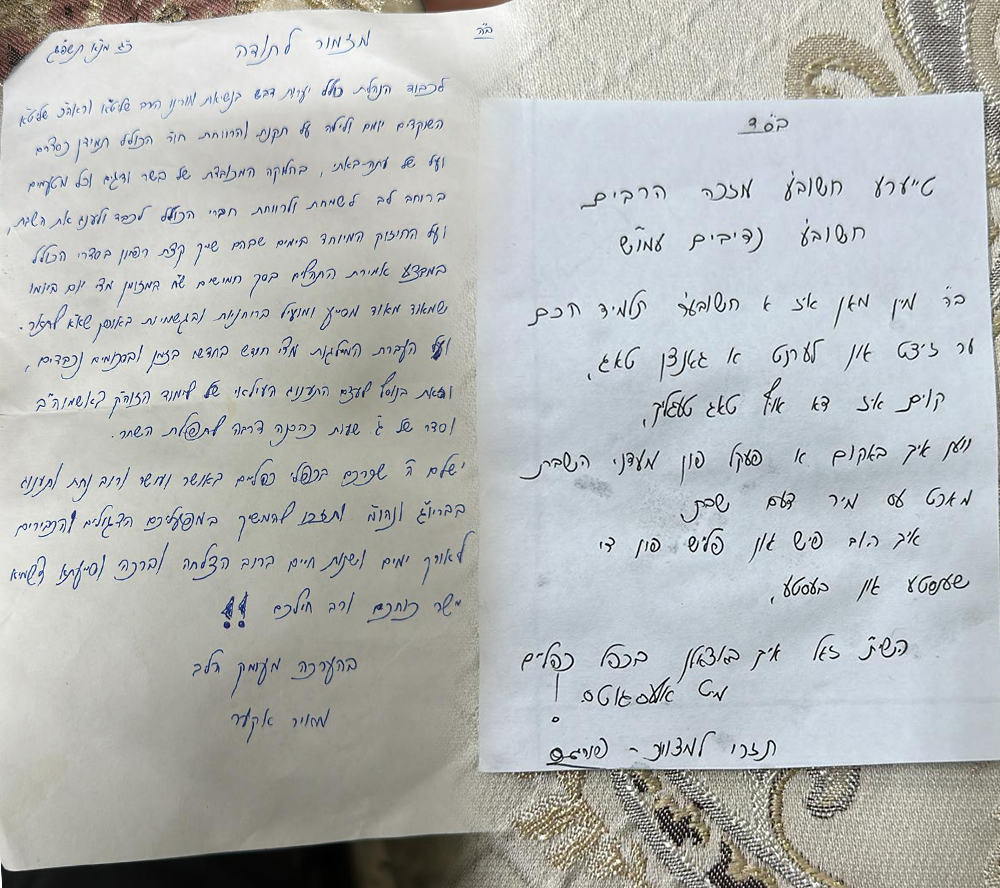 ב"ה
כ"ג מנ"א תשפ"ג
מזמור לתודה
לכבוד הנהלת כולל יערות דבש בנשיאת מורינו הרב שליט"א וראה"כ שליט"א
השוקדים יומם ולילה על תקנת והרווחת חו"ר הכולל תמידן כסדרם
ועל של עתה באתי, בחלוקה המכובדת של בשר ודגים וכל מטעמים
ברוחב לב לשמחת ולרווחת חברי הכולל לכבד ולענג את השבת,
ועל החיזוק המיוחד בימים שבהם שייך קצת רפיון בסדרי הכולל
במבצע אמירת התהלים בסך חמישים ש"ח במזומן מדי יום ביומו
שמאוד מאוד מסייע ומועיל ברוחניות ובגשמיות באופן שא"א לתאר.
ועל העברת המילגות מדי חודש בחדשו בזמן ובסכומים נכבדים,
וזאת בנוסף לעצם התענוג העילאי של לימוד הזוה"ק באשמוה"ב
וסדר של ג' שעות כהכנה דרבה לתפילת השחר.
ישלם ה' שכרכם בכפלי כפליים באושר ועושר ורוב נחת ותענוג
בבריו"ג ונהו"מ ותזכו להמשיך במפעליכם הדגולים והכבירים
לאורך ימים ושנות חיים ברוב הצלחה וברכה וסייעתא דשמיא
יישר כוחכם ורב חילכם !!
בהערכה מעומק הלב
מאיר אקער
בס"ד
טייערע חשוב'ע מזכה הרבים
חשוב'ע נדיבים עמו"ש
ב"ה מיין מאן איז א חשוב'ער תלמיד חכם
ער זיצט און לערנט א גאנצן טאג,
קוים איז דא אויף טאג טעגליך,
ווען איך באקום א פעקל פון מעדני השבת
מאכט עס מיר דעם שבת
איך האב פיש און פלייש פון די
שענסטע און בעסטע,
השי"ת זאל אייך באצאלן בכפל כפליים
מיט אלעס גוטס!
תזכו למצוות -